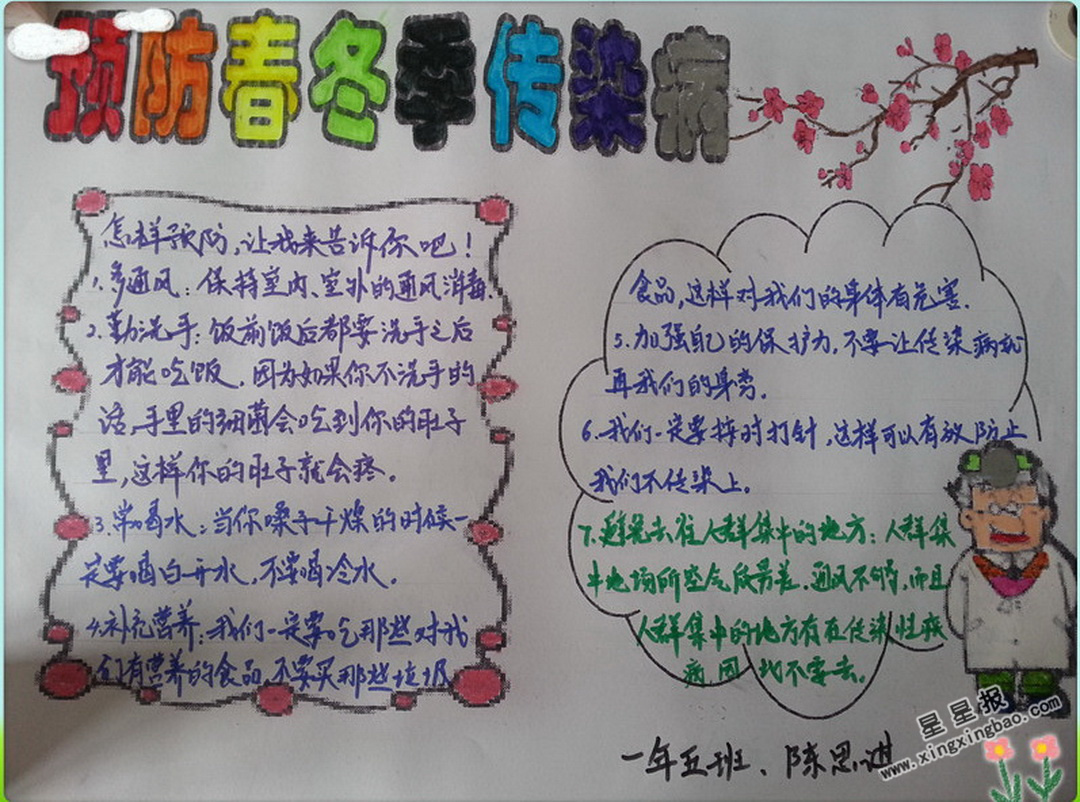 预防春冬季传染病
怎样预防,让我来告诉你吧!
1.多通风:保持室内、室外的通风消毒.
2.勤洗手:饭前饭后都要洗手之后
才能吃饭,因为如果你不洗手的
话,手里的细菌会吃到你的肚子
里,这样你的肚子就会疼。
3.常喝水:当你嗓子干燥的时候一
定要喝白开水,不要喝冷水。
4.补充营养:我们一定要吃那些对我
们有营养的食品,不要买那些垃圾
食品,这样对我们的身体有危害.
5.加强自己的保护力,不要让传染病就
再我们的身旁。
6.我们一定要按时打针,这样可以有放防止
我们不传染上。
7.避免去往人群集中的地方:人群集
中地场所空气质量差,通风不够,而且
人群集中的地方有在传染性疾
病,因 不要去。
一年五班、陈思进
星星报
www.xingxingbao.com